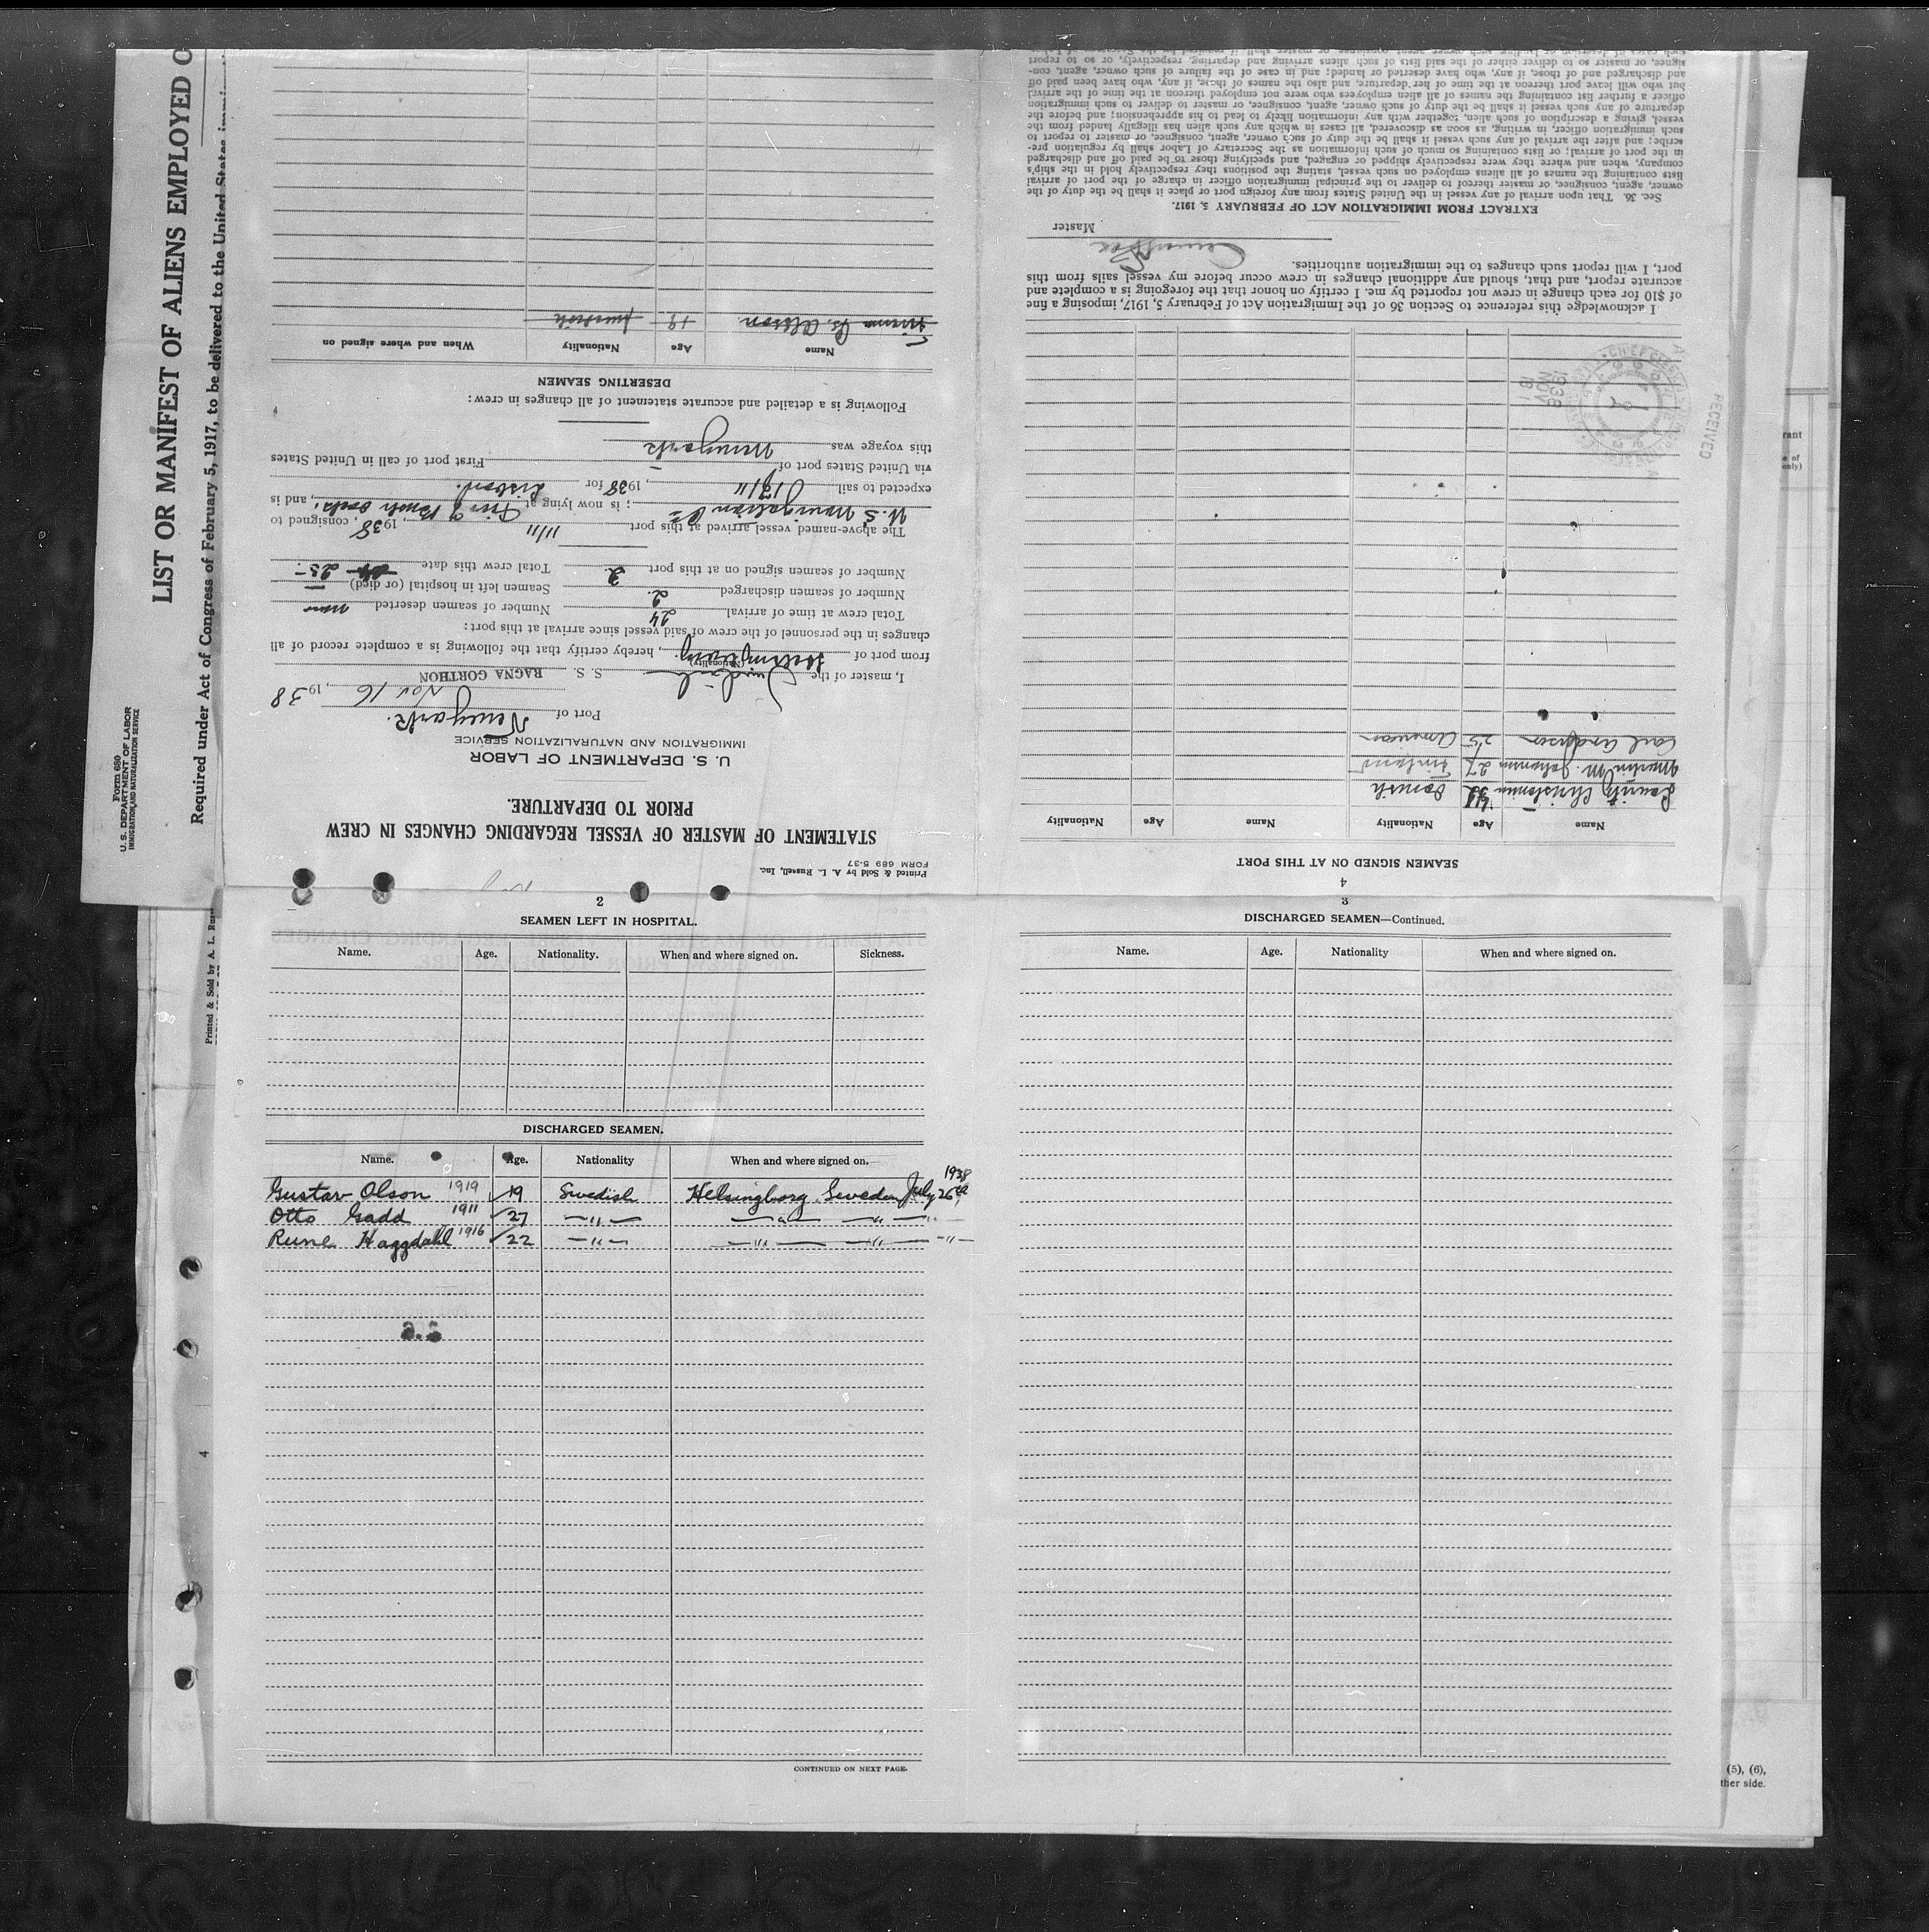 Form 680
U. S. DEPARTMENT OF LABOR
IMMIGRATION AND NATURALIZATION SERVICE
LIST OR MANIFEST OF ALIENS EMPLOYED O
Required under Act of Congress of February 5, 1917, to be delivered to the United States immi
Printed & Sold by A. L. Russell, Inc.
FORM 689 5-37
STATEMENT OF MASTER OF VESSEL REGARDING CHANGES IN CREW
PRIOR TO DEPARTURE.
U. S. DEPARTMENT OF LABOR
IMMIGRATION AND NATURALIZATION SERVICE
Port of Newyork. Nov 16, 1938
I, master of the Swedish S. S. RAGNA GORTHON
(Nationality)
from port of Helsingborg, hereby certify that the following is a complete record of all
changes in the personnel of the crew of said vessel since arrival at this port:
Total crew at time of arrival 24 Number of seamen deserted none
Number of seamen discharged 2 Seamen left in hospital (or died) —
Number of seamen signed on at this port 3 Total crew this date 25
The above-named vessel arrived at this port 11/11, 1938, consigned to
U.S. Navigation Co; is now lying at, and is
expected to sail 17/11, 1938 for Lisbon.
via United States port of — First port of call in United States
this voyage was Newyork
Following is a detailed and accurate statement of all changes in crew:
DESERTING SEAMEN
Name Age Nationality When and where signed on
Olsson 19 Swedish
4
SEAMEN SIGNED ON AT THIS PORT
Name Age Nationality Name Age Nationality
Lauritz Christensen Danish
Martin M. Johansen 27 Finland
Carl Anderson 25 American
RECEIVED
NOV 18 1938
I acknowledge this reference to Section 36 of the Immigration Act of February 5, 1917, imposing a fine
of $10 for each change in crew not reported by me. I certify on honor that the foregoing is a complete and
accurate report, and that, should any additional changes in crew occur before my vessel sails from this
port, I will report such changes to the immigration authorities.
Master
EXTRACT FROM IMMIGRATION ACT OF FEBRUARY 5, 1917.
Sec. 36. That upon arrival of any vessel in the United States from any foreign port or place it shall be the duty of the
owner, agent, consignee, or master thereof to deliver to the principal immigration officer in charge of the port of arrival
lists containing the names of all aliens employed on such vessel, stating the positions they respectively hold in the ship's
company, when and where they were respectively shipped or engaged, and specifying those to be paid off and discharged
in the port of arrival; or lists containing so much of such information as the Secretary of Labor shall by regulation pre-
scribe; and after the arrival of any such vessel it shall be the duty of such owner, agent, consignee, or master to report to
such immigration officer, in writing, as soon as discovered, all cases in which any such alien has illegally landed from the
vessel, giving a description of such alien, together with any information likely to lead to his apprehension; and before the
departure of any such vessel it shall be the duty of such owner, agent, consignee, or master to deliver to such immigration
officer a further list containing the names of all alien employees who were not employed thereon at the time of the arrival
but who will leave port thereon at the time of her departure, and also the names of those, if any, who have been paid off
and discharged and of those, if any, who have deserted or landed; and in case of the failure of such owner, agent, con-
signee, or master so to deliver either of the said lists of such aliens arriving and departing, respectively, or so to report
2
SEAMEN LEFT IN HOSPITAL.
Name. Age. Nationality. When and where signed on. Sickness.
DISCHARGED SEAMEN.
Name. Age. Nationality When and where signed on.
Gustav Olson 1919 19 Swedish Helsingborg Sweden July 26 1938
Otto Gadd 1911 27 —"— —"— —"— "
Rune Haggdahl 1916 22 —"— —"— —"— -"-
CONTINUED ON NEXT PAGE.
3
DISCHARGED SEAMEN—Continued.
Name. Age. Nationality When and where signed on.
Printed & Sold by A. L. Rus
4
rant
e of
only)
(5), (6),
ther side.